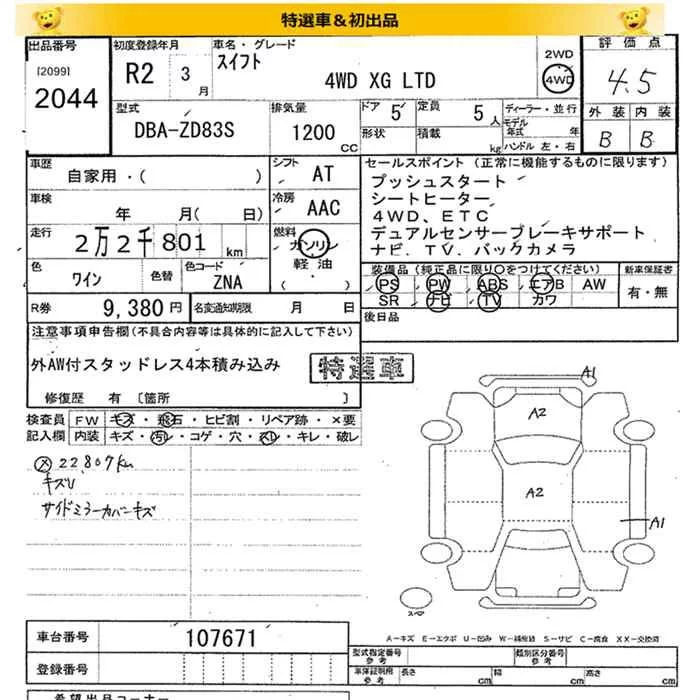 特選車＆初出品
出品番号
[2099]
2044
初度登録年月
R2 3月
車名・グレード
スイフト
4WD XG LTD
2WD
4WD
評価点
4.5
外装 内装
B B
型式
DBA-ZD83S
排気量
1200
CC
ドア 5
定員 5人
形状
積載 kg
ディーラー・並行
モデル
年式 年
ハンドル 左・右
車歴
自家用・( )
シフト
AT
車検
年 月( 日)
冷房
AAC
走行
2万2千801 km
燃料
ガソリン
軽油・
( )
色
ワイン
色替
色コード
ZNA
R券
9,380円
名変通知期限 月 日
セールスポイント (正常に機能するものに限ります)
プッシュスタート
シートヒーター
4WD、ETC
デュアルセンサーブレーキサポート
ナビ、TV、バックカメラ
装備品(純正品に限り○をつけてください)
新車保証書
PS PW ABS エアB AW
SR ナビ TV カワ
有・無
後日品
注意事項申告欄(不具合内容等は具体的に記入して下さい)
外AW付スタッドレス4本積み込み
特選車
修復歴 有 [箇所 ]
検査員
記入欄
FW キズ・飛石・ヒビ割・リペア跡・×要
内装 キズ・汚レ・コゲ・穴・スレ・キレ・破レ
22,807km
キズU
サイドミラーカバーキズ
A1
A2
A2
A1
スペア
A－キズ E－エクボ U－凹み W－補修跡 S－サビ C－腐食 XX－交換済
車台番号
107671
登録番号
型式指定番号
参考
類別区分番号
参考
車検証明用
参考
長さ cm
幅 cm
高さ cm
希望出品コーナー